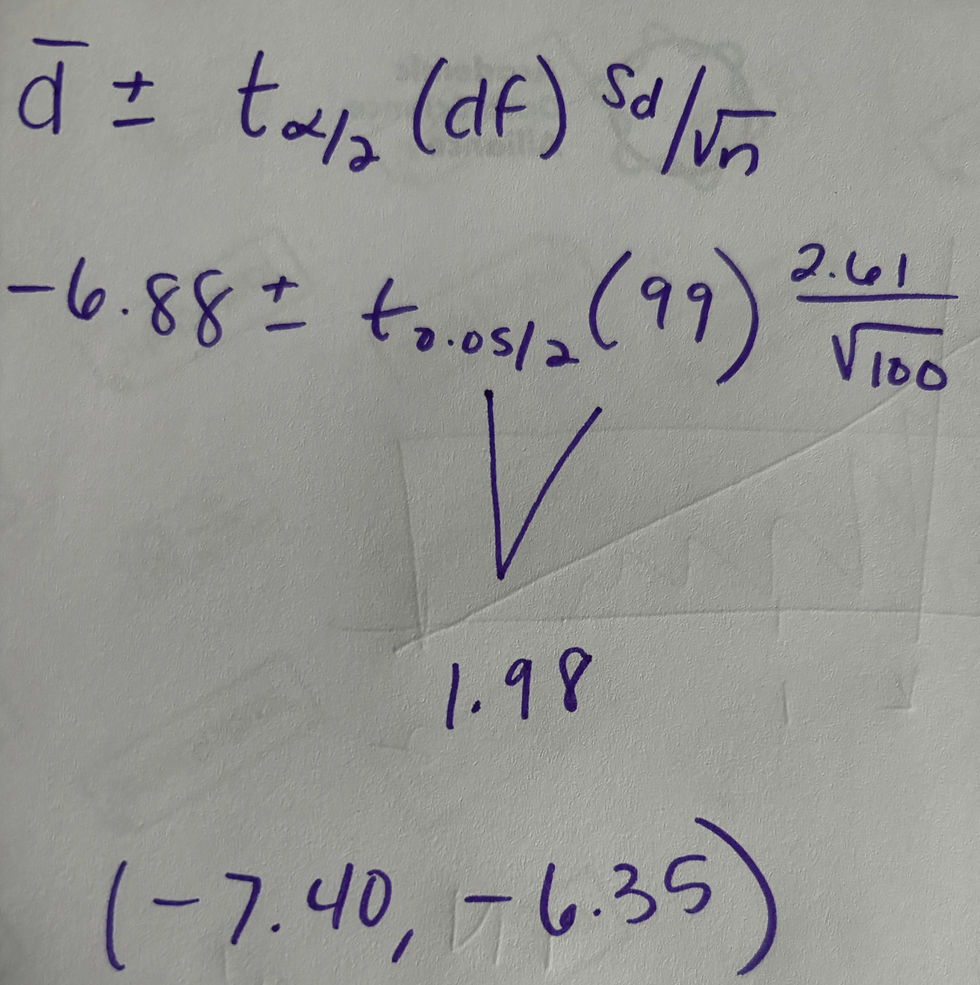 d̄ ± t_α/2 (df) Sd/√n
-6.88 ± t_0.05/2 (99) 2.61/√100
1.98
(-7.40, -6.35)